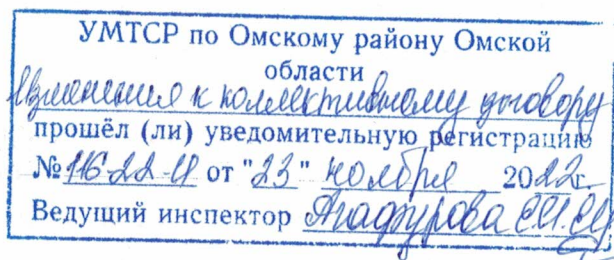 УМТСР по Омскому району Омской
области
Изменения к коллективному договору
прошёл (ли) уведомительную регистрацию
от "23" ноября 2022г.
Ведущий инспектор